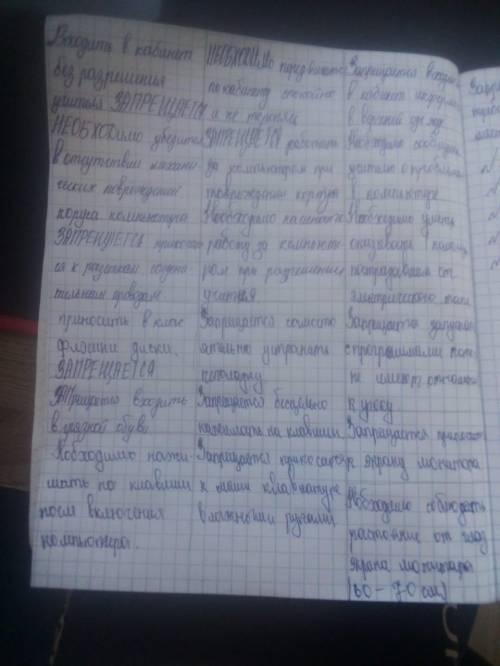 Входить в кабинет
без разрешения
учителя ЗАПРЕЩАЕТСЯ
НЕОБХОДИМО убедиться
в отсутствии механи
ческих повреждений
компьютера
ЗАПРЕЩАЕТСЯ
ся к разъемам соедени
тельным проводам
приносить в класс
флэшки диски.
ЗАПРЕЩАЕТСЯ
входить
в грязной обуви
Необходимо нажи
мать по клавиши
после включения
компьютера.
НЕОБХОДИМО передвигаться
по кабинету спокойно
и не торопясь
ЗАПРЕЩАЕТСЯ работать
за компьютером при
повреждении корпуса
Необходимо
работу за компьюте
ром при разрешении
учителя
Запрещается самосто
ятельно устранять
неполадку
Запрещается бесцельно
нажимать на клавиши
Запрещается прикосаться
к мыши клавиатуре
влажными руками
Запрещается входить
в кабинет информа
в верхней одежде
Необходимо сообщить
учителю о проблемах
в компьютере
Необходимо уметь
оказывать помощь
пострадавшим от
электрического тока
Запрещается
с программами
не имеют отношения
к уроку
Запрещается
к экрану монитора
Необходимо соблюдать
растояние от глаз
экрана монитора
(60-70 см)